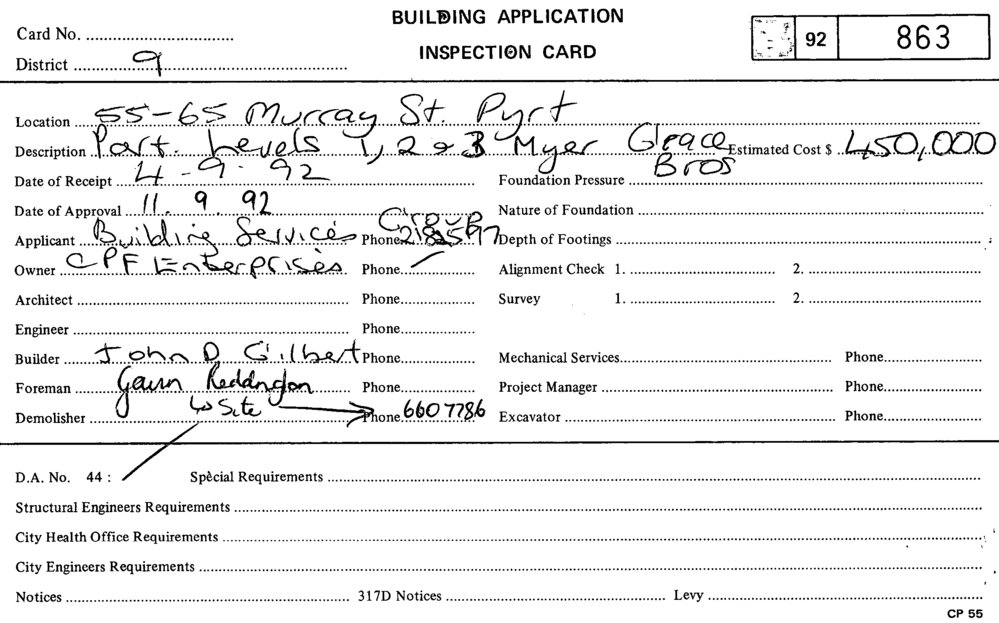 BUILDING APPLICATION
INSPECTION CARD
Card No. ..............................
District ........ 9 ........
92 863
Location ... 55-65 Murray St. Pyrt
Description ... Part. Levels 1, 2 & 3 Myer Grace Bros Estimated Cost $ ... 450,000
Date of Receipt ... 4-9-92 Foundation Pressure ..............................
Date of Approval ... 11.9.92 Nature of Foundation ..............................
Applicant ... Building Services Group Phone ... Depth of Footings ..............................
Owner ... CPF Enterprises Phone... Alignment Check 1. .............................. 2. ..............................
Architect .............................. Phone............... Survey 1. .............................. 2. ..............................
Engineer .............................. Phone...............
Builder ... John D Gilbert Phone............... Mechanical Services.............................. Phone...............
Foreman ... Phone............... Project Manager .............................. Phone...............
↳ Site →
Demolisher .............................. Phone. 660 7786 Excavator .............................. Phone...............
D.A. No. 44 : / Special Requirements ..............................
Structural Engineers Requirements ..............................
City Health Office Requirements ..............................
City Engineers Requirements ..............................
Notices .............................. 317D Notices .............................. Levy ..............................
CP 55